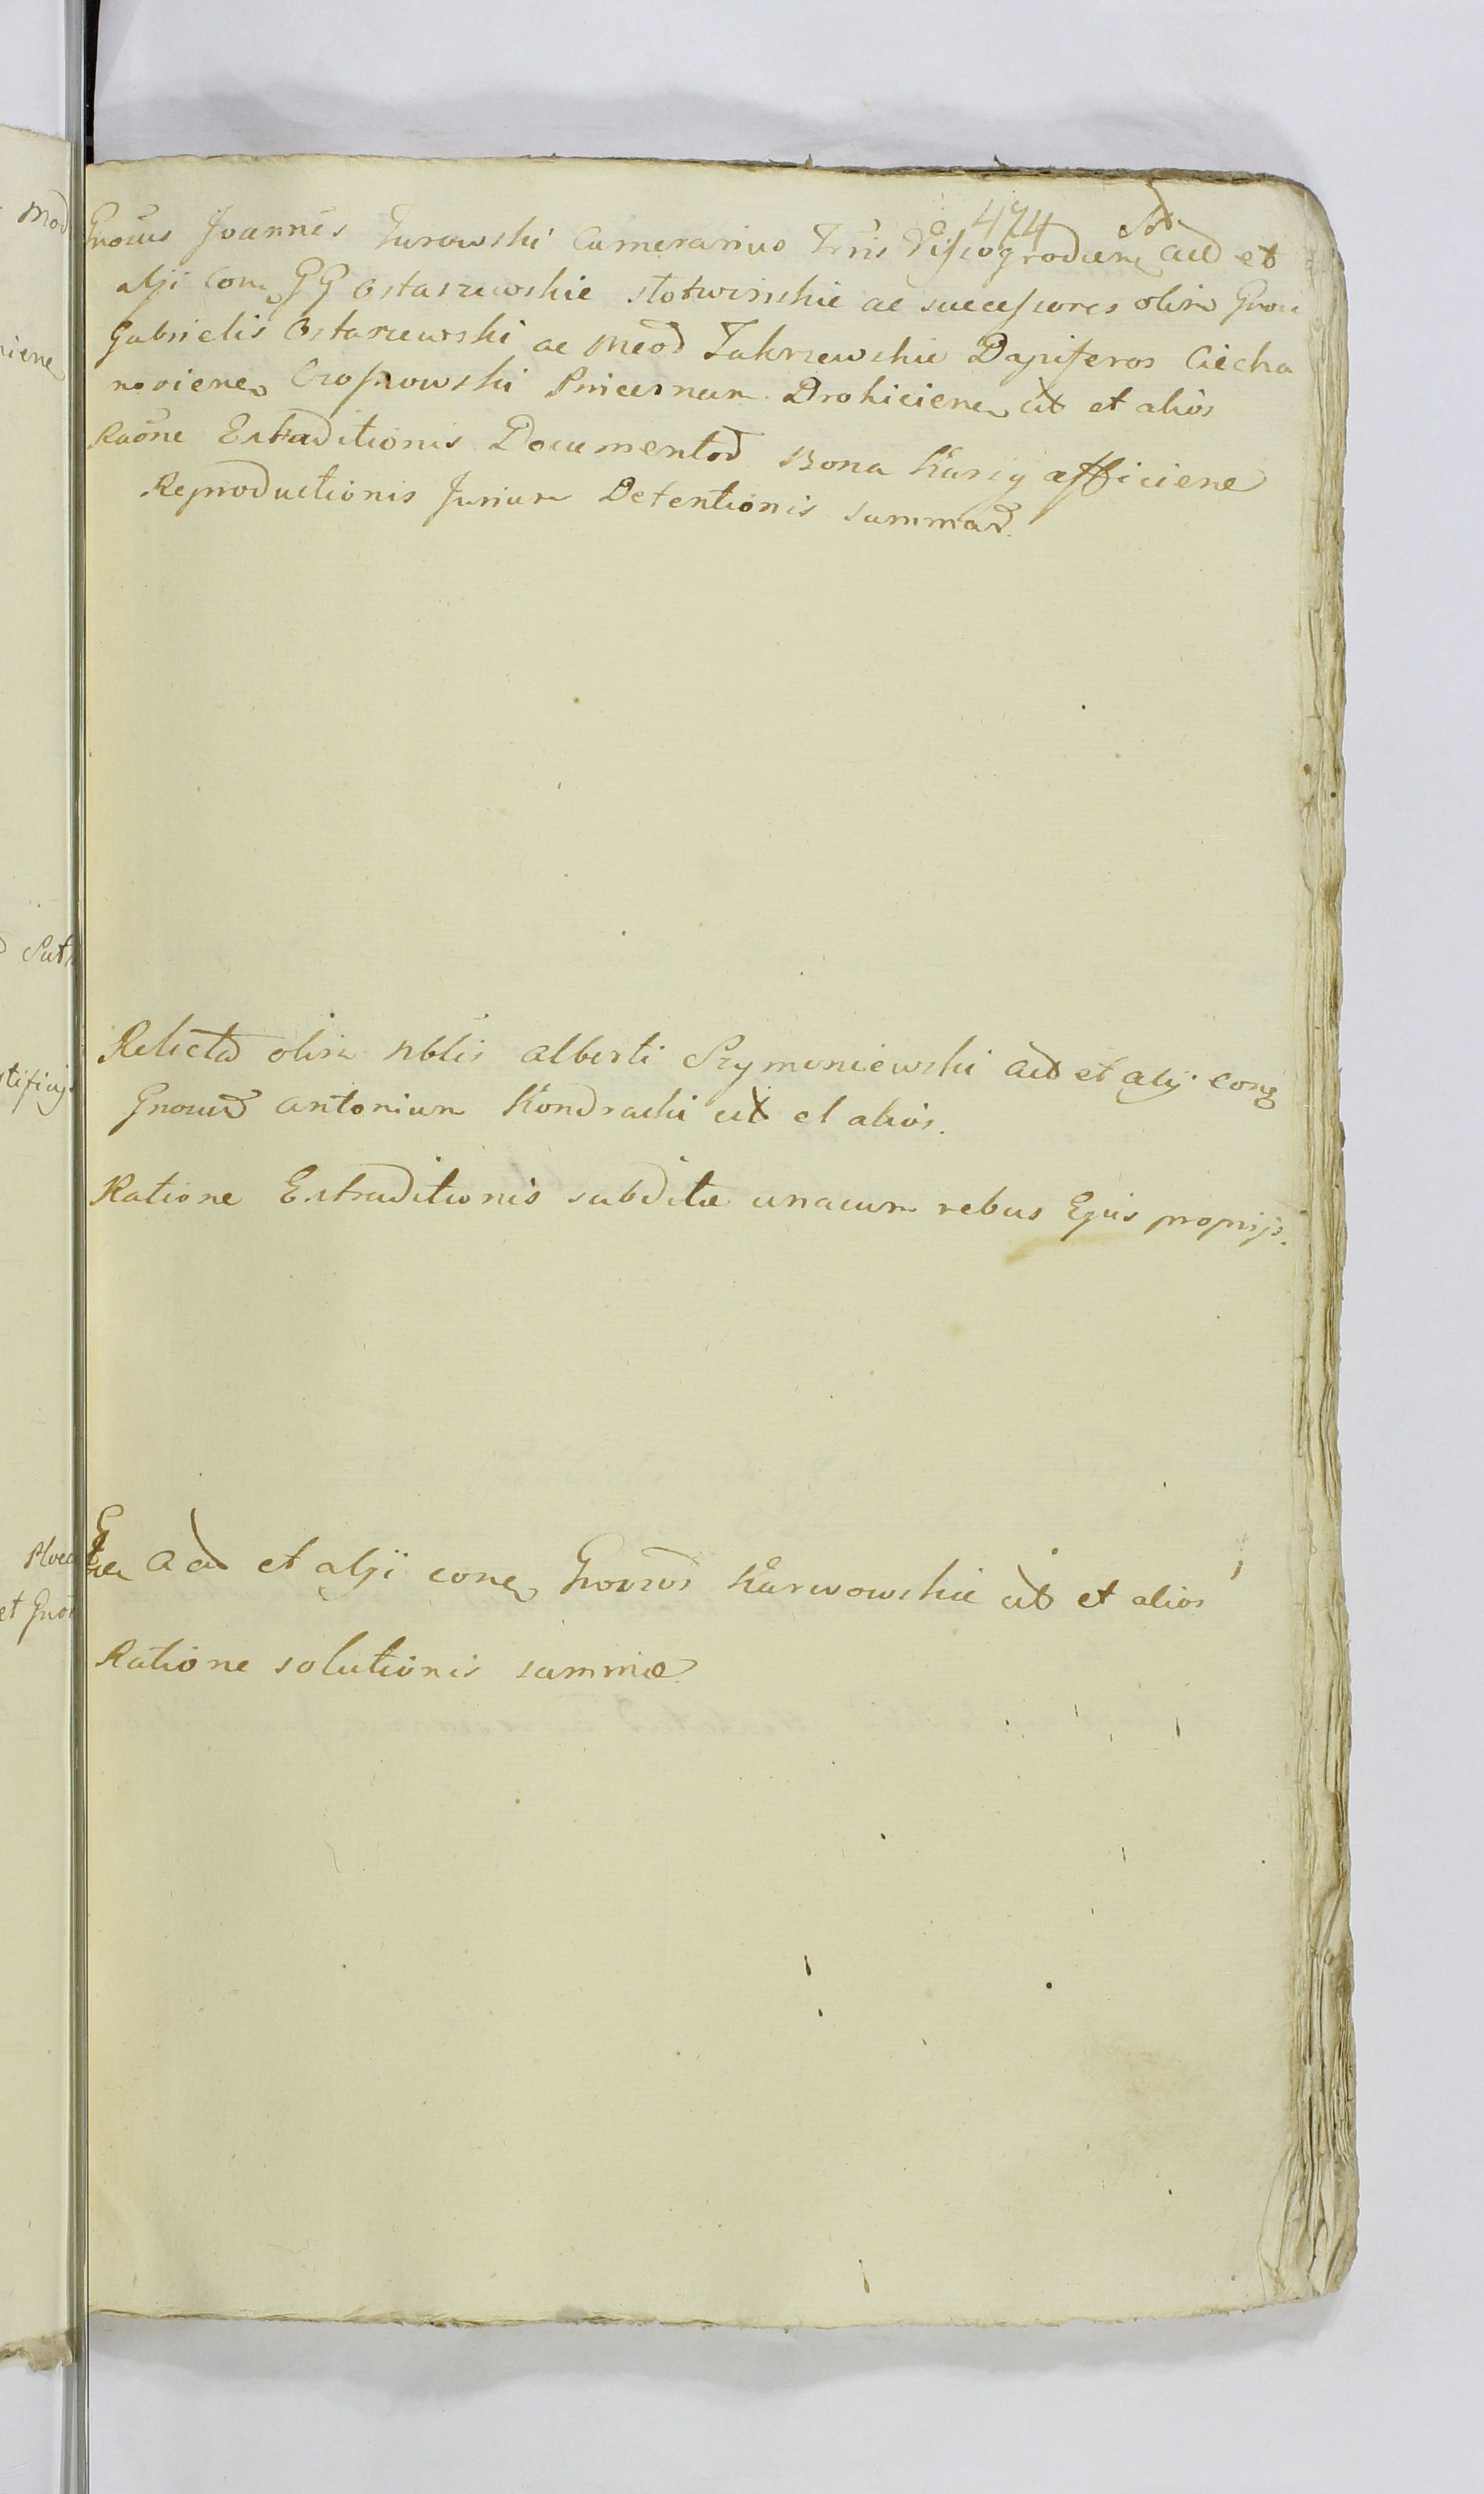 474
Gnosus Joannes Gurowski Camerarius Trris Visogrodien Act et
alji Conq GG Ostaszewskie Slotwinskie ac successores olim Gnosi
Gabrielis Ostaszewski ac Meod Zakrzewskie Dapiferos Ciecha
novienen Czosnowski Pincernam Drohicienen Cit et alios
Raõne Extraditionis Documentod Bona Karsy afficien
Reproductionis Jurium Detentionis summad.
Relicta olim Nblis Alberti Szymoniewski Act et alij Conq
Gnosud Antonium Kondracki Cit et alios.
Ratione Extraditionis subditæ unacum rebus Ejus proprijs.
Act et alji conq Gnosos Karwowskie Cit et alios
Ratione solutionis summæ